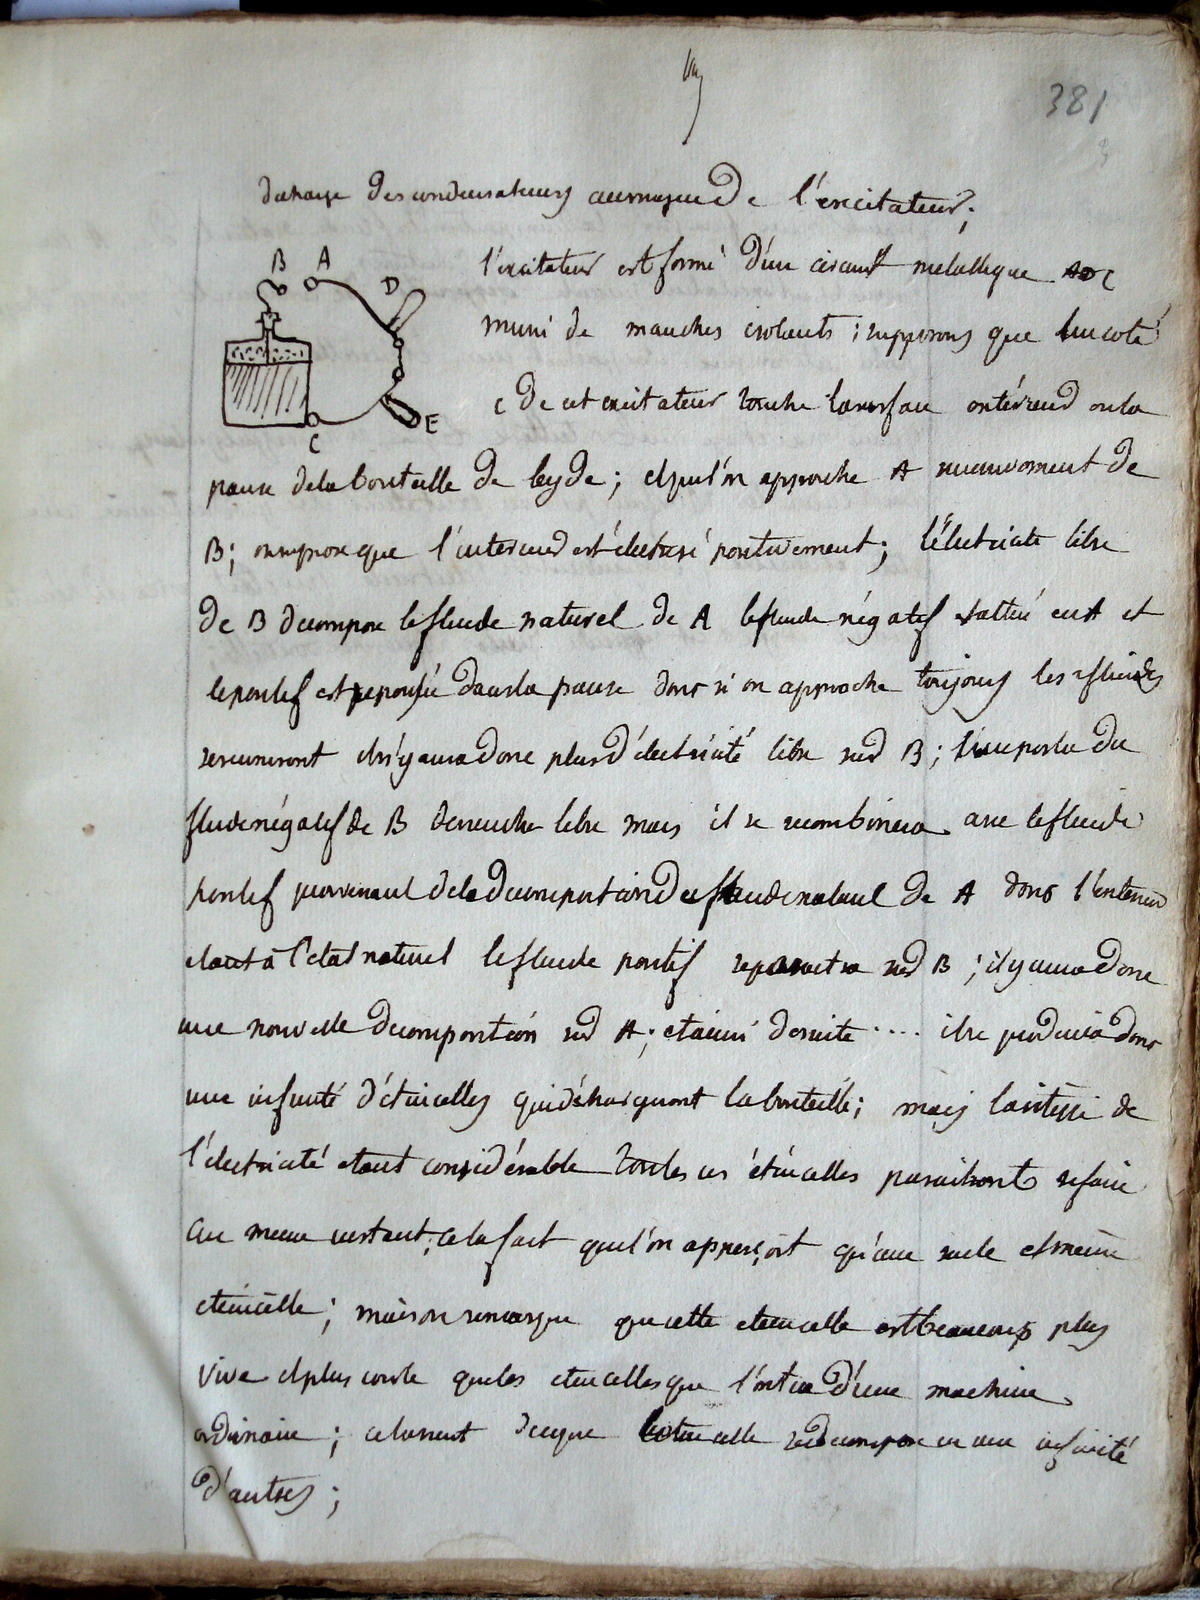 381
décharge des condensateurs au moyen de l'excitateur;
B A D
l'excitateur est formé d'un circuit métallique ADC
muni de manches isolants; supposons que l'un coté
c de cet excitateur touche la surface extérieur ou la
C E
panse de la bouteille de leyde; et que l'on approche A de
B; on suppose que l'interieur est électrisé positivement; l'électricité libre
de B décompose le fluide naturel de A le fluide négatif attiré en A et
le positif est repoussé dans la panse donc si on approche toujours les 2 fluides
se réuniront et il n'y aura donc plus d'électricité libre sur B; du
fluide négatif de B devenche libre mais il se recombinera avec le fluide
positif provenant de la décomposition du fluide naturel de A donc l'interieur
étant à l'état naturel le fluide positif reparaitra sur B; il y aura donc
une nouvelle décomposition sur A; et ainsi de suite .... il se produira donc
une infinité d'étincelles qui déchargeront la bouteille; mais la vitesse de
l'électricité étant considérable toutes ces étincelles paraitront se faire
au meme instant; cela fait que l'on apperçoit qu'une seule et même
étincelle; mais on remarque que cette etincelle est beaucoup plus
vive et plus courte que les etincelles que l'on tire d'une machine
ordinaire; cela vient de ce que l'etincelle se decompose en une infinité
d'autres;